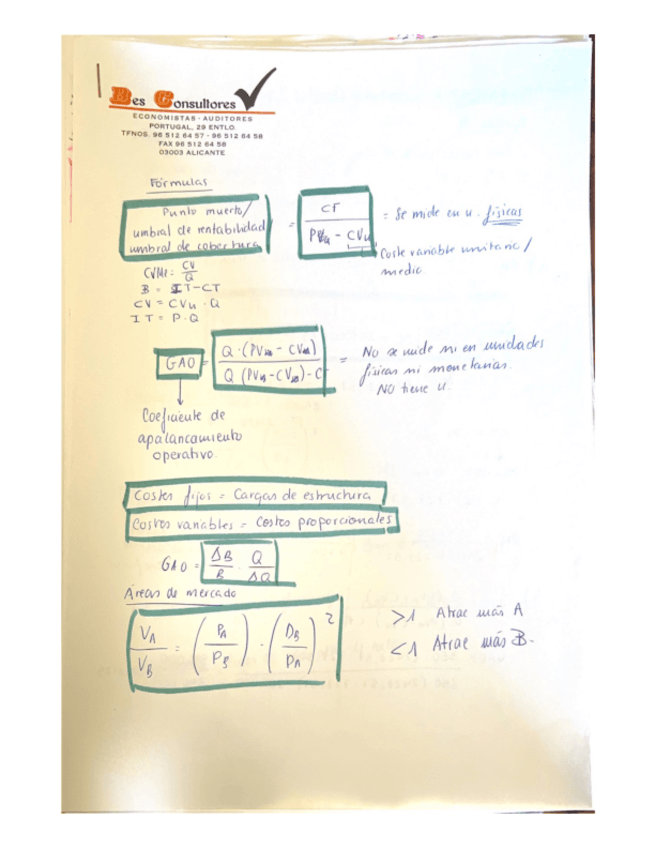 Des Consultores
ECONOMISTAS - AUDITORES
PORTUGAL, 29 ENTLO.
TFNOS. 96 512 64 57 - 96 512 64 58
FAX 96 512 64 58
03003 ALICANTE
Fórmulas
Punto muerto/
umbral de rentabilidad
umbral de cobertura
= CF / PVu - CVu = Se mide en u. físicas
Coste variable unitario/
medio
CVMe = CV / Q
B = IT-CT
CV = CVu · Q
IT = P·Q
GAO = Q·(PVu - CVu) / Q (PVu - CVu) - C = No se mide ni en unidades
físicas ni monetarias.
NO tiene u.
Coeficiente de
apalancamiento
operativo.
Costes fijos = Cargas de estructura
Costes variables = Costes proporcionales
GAO = ΔB / B · Q / ΔQ
Áreas de mercado
VA / VB = (PA / PB) · (DB / DA)²
>1 Atrae más A
<1 Atrae más B.